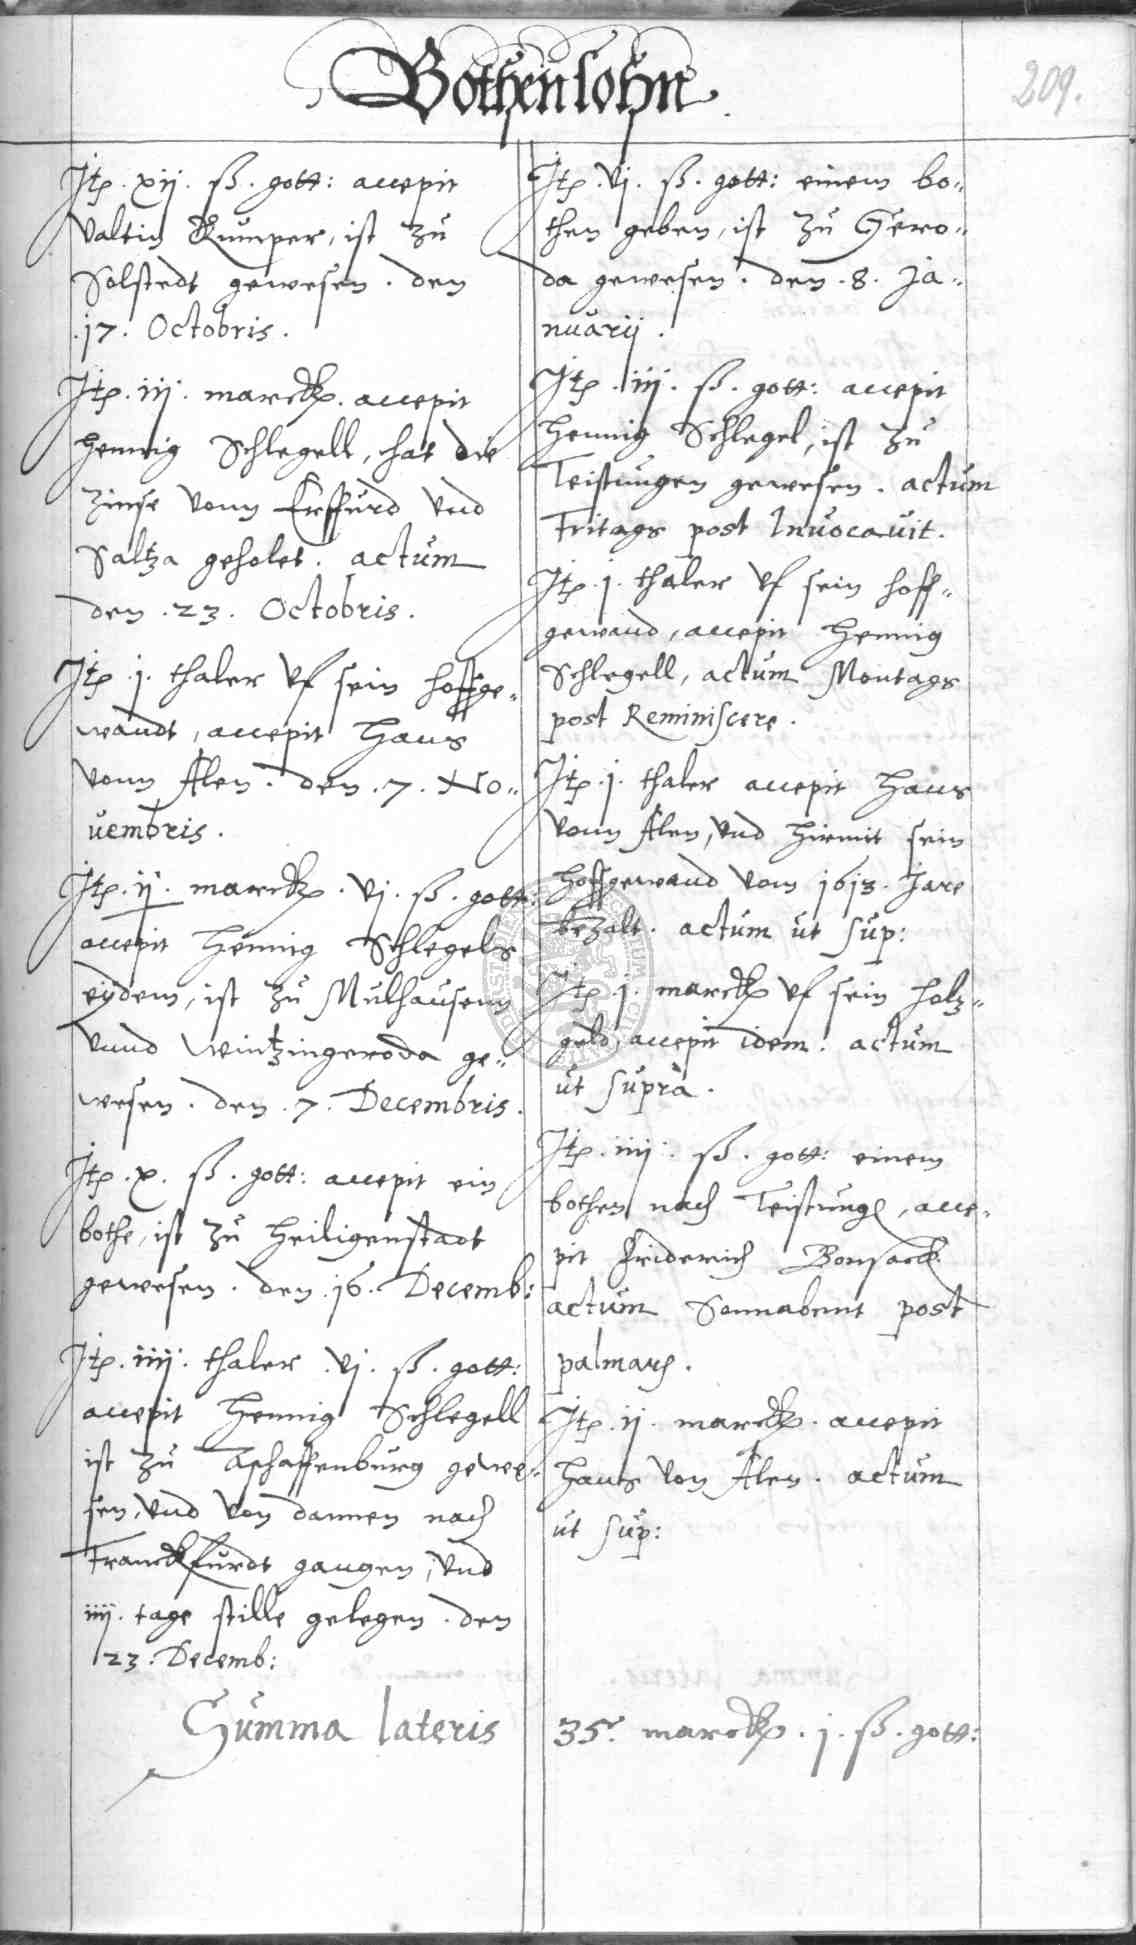 Bothensohn.
209.
Jtẽ. xij. ß. gott: accepit
Valtin Kumper, ist zu
Solstedt gewesen. den
.17. Octobris.
Jtẽ. iij. marck. accepit
Hennig Schlegell, hat die
Zinse vonn Erffurd vnd
Saltza geholet. actum
den .23. Octobris.
Jtẽ .j. thaler vf sein hoffge-
wandt, accepit Hans
vonn Alen. den .7. No-
uembris.
Jtẽ. ij. marck. vj. ß. gott:
accepit Hennig Schlegels
eydem, ist zu Mulhausenn
vnnd Wintzingeroda ge-
wesen. den .7. Decembris.
Jtẽ. x. ß. gott: accepit ein
bothe, ist zu Heiligenstadt
gewesen. den .16. Decemb:
Jtẽ. iiij. thaler .vj. ß. gott:
accepit Hennig Schlegell
ist zu Aschaffenburg gewe-
sen, vnd von dannen nach
Franckfurdt gangen, vnd
iiij. tage stille gelegen. den
23. Decemb:
Jtẽ. vj. ß. gott: einem bo-
then geben, ist zu Gero-
da gewesen. den .8. Ja-
nuarij.
Jtẽ. iij. ß. gott: accepit
Hennig Schlegel, ist zu
Teistungen gewesen. actum
Fritags post Inuocauit.
Jtẽ. j. thaler vf sein hoff-
gewand, accepit Hennig
Schlegell, actum Montags
post Reminiscere.
Jtẽ. j. thaler accepit Hans
vonn Alen, vnd hirmit sein
hoffgewand vom 1613. Jare
bezalt. actum ut sup:
Jtẽ. j. marck vf sein holz-
geld, accepit idem. actum
ut suprà.
Jtẽ. iiij. ß. gott: einem
bothen nach Teistungẽ, acce-
pit Friderich Bonsack.
actum Sonnabent post
palmarũ.
Jtẽ. ij. marck. accepit
Hans von Alen. actum
ut sup:
Summa lateris 35. marck. j. ß. gott: